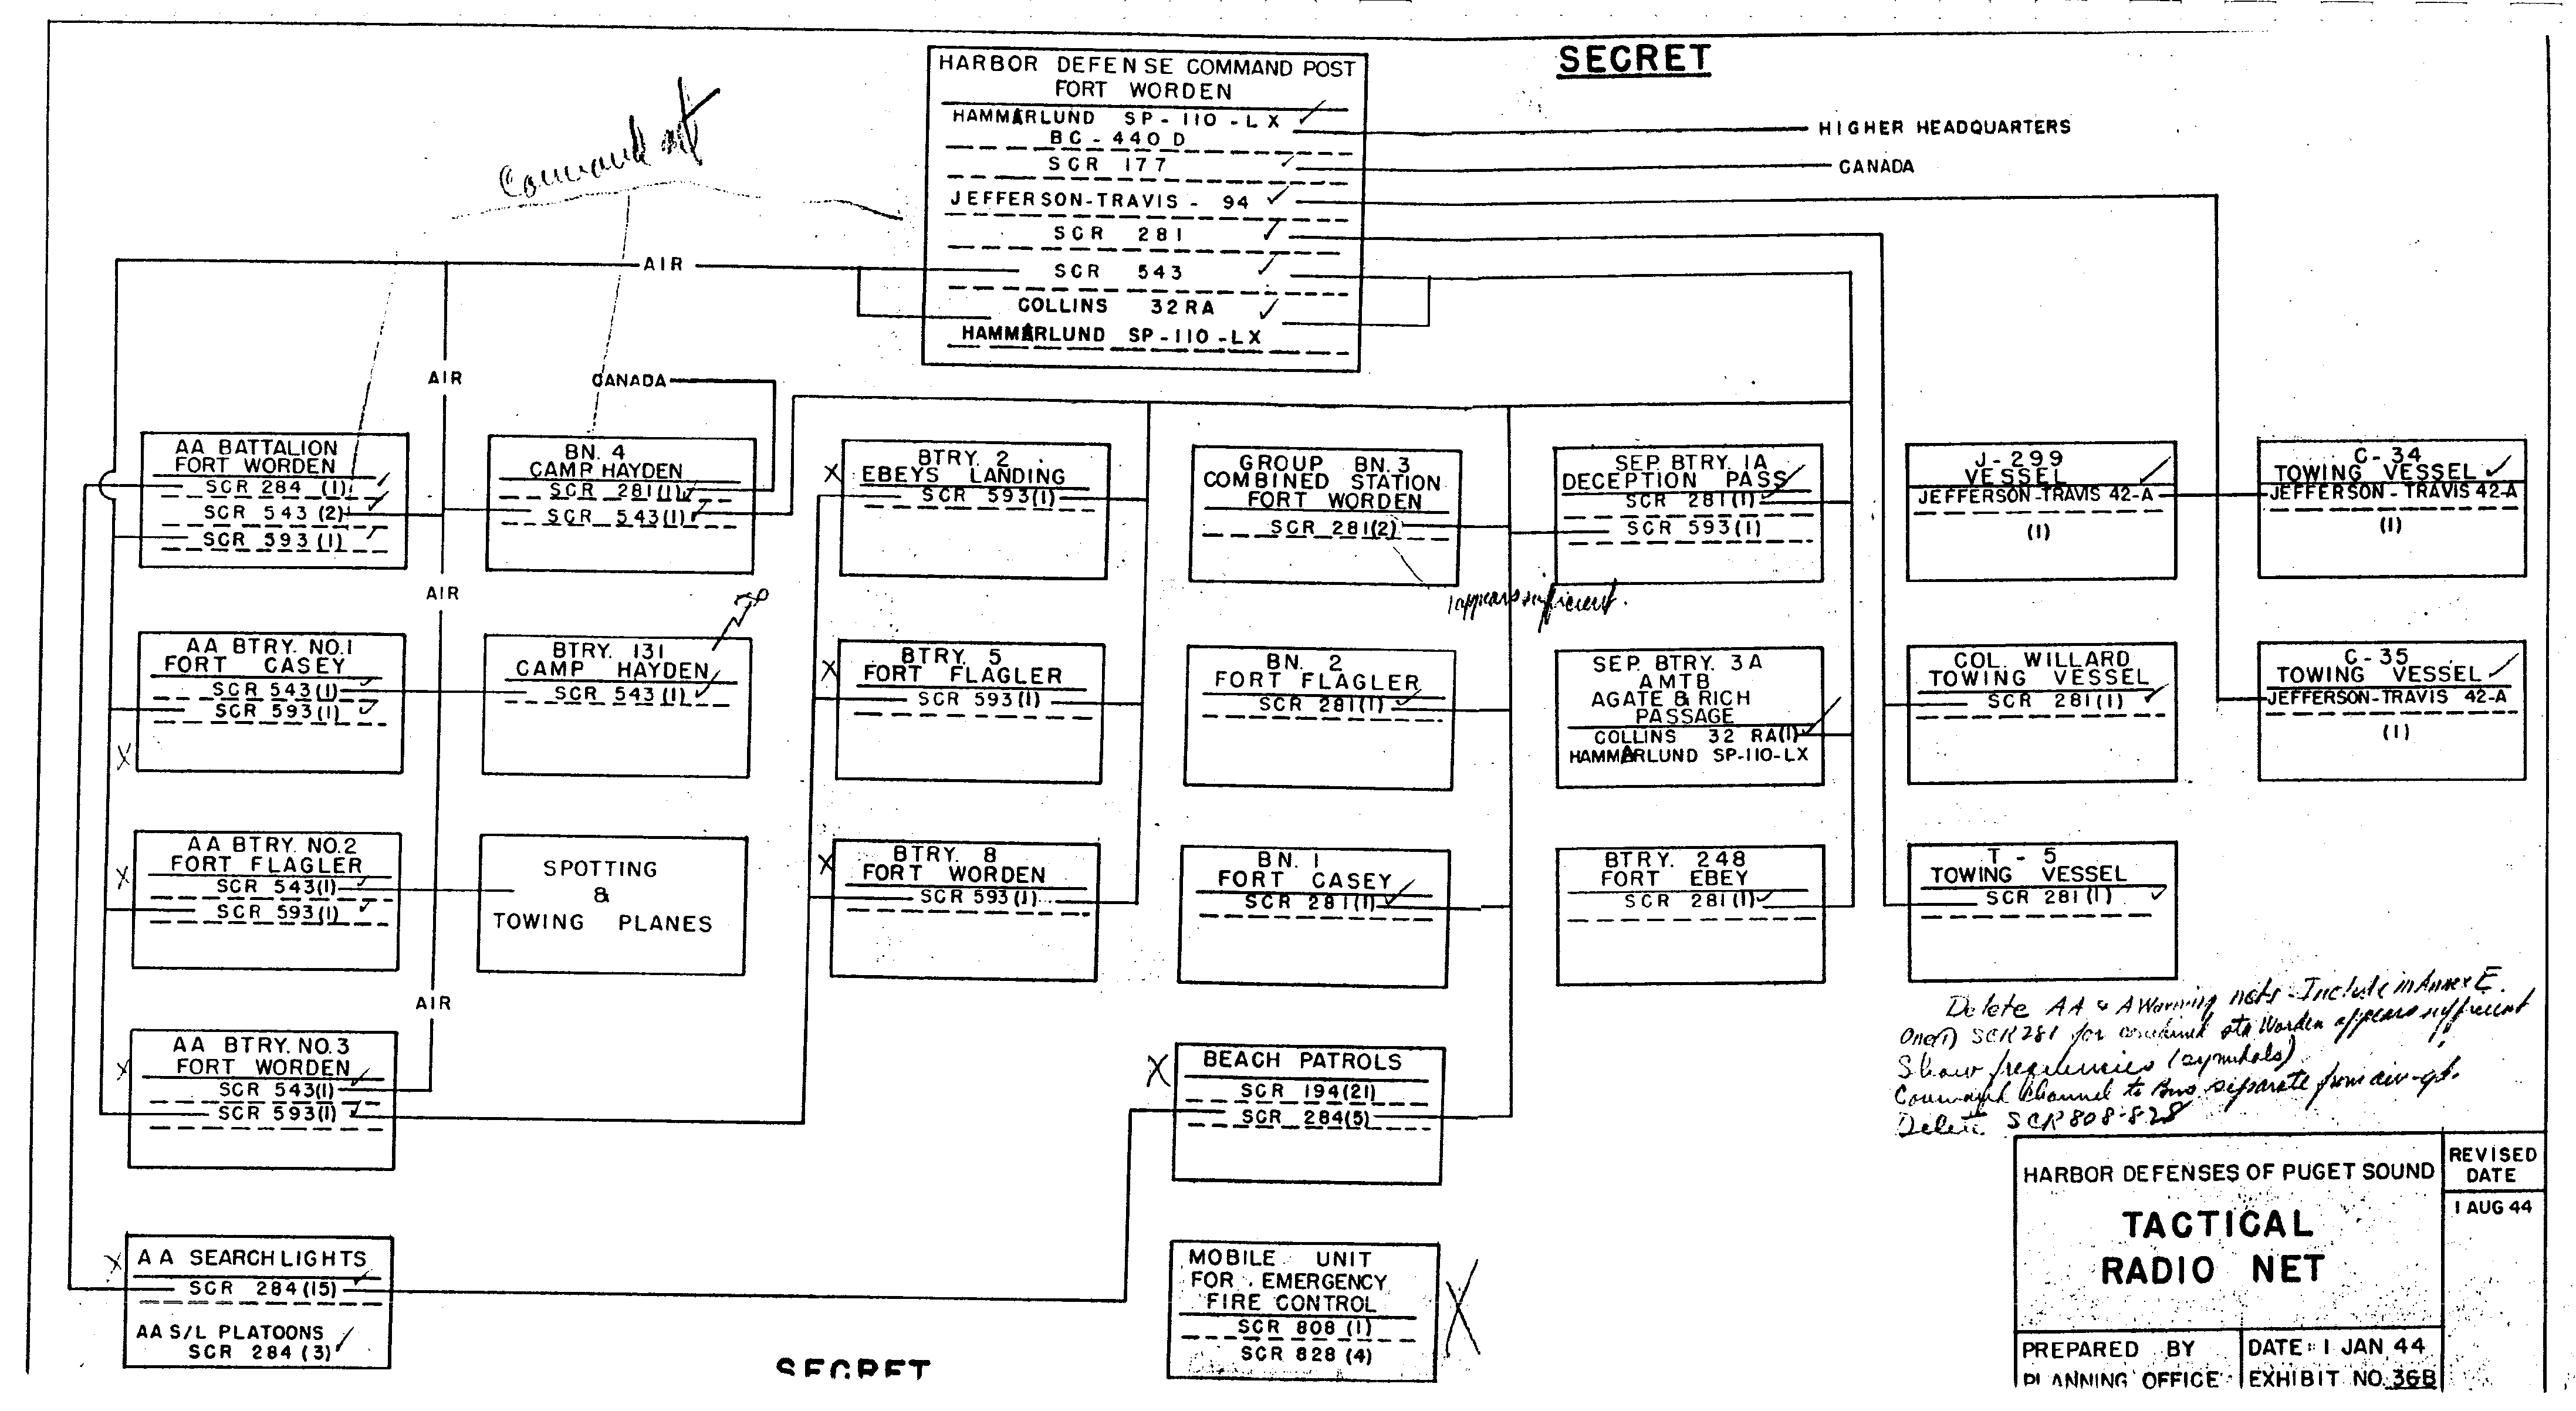 SECRET
HARBOR DEFENSE COMMAND POST
FORT WORDEN
HAMMARLUND SP-110-LX
BC-440 D
SCR 177
JEFFERSON-TRAVIS - 94
SCR 281
SCR 543
COLLINS 32RA
HAMMARLUND SP-110-LX
HIGHER HEADQUARTERS
CANADA
Command
AIR
AIR
CANADA
AA BATTALION
FORT WORDEN
SCR 284 (1)
SCR 543 (2)
SCR 593 (1)
BN. 4
CAMP HAYDEN
SCR 281(1)
SCR 543(1)
BTRY. 2
EBEYS LANDING
SCR 593(1)
GROUP BN. 3
COMBINED STATION
FORT WORDEN
SCR 281(2)
1 appears sufficient.
SEP. BTRY. 1A
DECEPTION PASS
SCR 281(1)
SCR 593(1)
J-299
VESSEL
JEFFERSON-TRAVIS 42-A
(1)
C-34
TOWING VESSEL
JEFFERSON-TRAVIS 42-A
(1)
AIR
AA BTRY. NO.1
FORT CASEY
SCR 543(1)
SCR 593(1)
BTRY. 131
CAMP HAYDEN
SCR 543(1)
BTRY. 5
FORT FLAGLER
SCR 593(1)
BN. 2
FORT FLAGLER
SCR 281(1)
SEP. BTRY. 3A
AMTB
AGATE & RICH
PASSAGE
COLLINS 32 RA(1)
HAMMARLUND SP-110-LX
COL. WILLARD
TOWING VESSEL
SCR 281(1)
C-35
TOWING VESSEL
JEFFERSON-TRAVIS 42-A
(1)
AA BTRY. NO.2
FORT FLAGLER
SCR 543(1)
SCR 593(1)
SPOTTING
&
TOWING PLANES
BTRY. 8
FORT WORDEN
SCR 593(1)
BN. 1
FORT CASEY
SCR 281(1)
BTRY. 248
FORT EBEY
SCR 281(1)
T-5
TOWING VESSEL
SCR 281(1)
AIR
AA BTRY. NO.3
FORT WORDEN
SCR 543(1)
SCR 593(1)
BEACH PATROLS
SCR 194(21)
SCR 284(5)
Delete AA & A Warning nets - Include in Annex E.
One(1) SCR 281 for combined sta Worden appears sufficient
Show frequencies (symbols)
Command Channel to Bns separate from air-gd.
Delete SCR 808-828
AA SEARCHLIGHTS
SCR 284(15)
AA S/L PLATOONS
SCR 284 (3)
MOBILE UNIT
FOR EMERGENCY
FIRE CONTROL
SCR 808 (1)
SCR 828 (4)
SECRET
HARBOR DEFENSES OF PUGET SOUND
TACTICAL
RADIO NET
REVISED
DATE
1 AUG 44
PREPARED BY
PLANNING OFFICE
DATE: 1 JAN 44
EXHIBIT NO. 36B